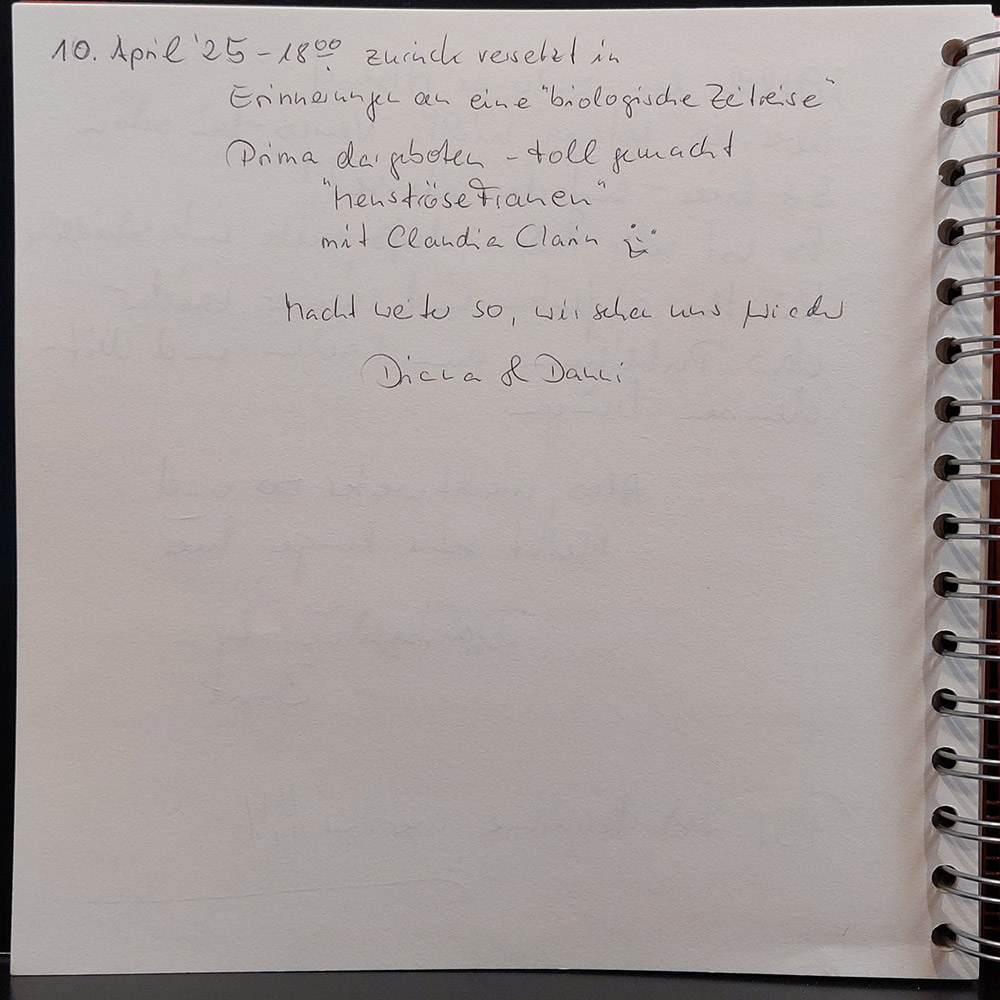 10. April '25 - 18⁰⁰ zurück versetzt in
Erinnerungen an eine "biologische Zeitreise"
Prima dargeboten - toll gemacht
"Menströse Frauen"
mit Claudia Clarin
Macht weiter so, wir sehen uns wieder
Diana & Danni